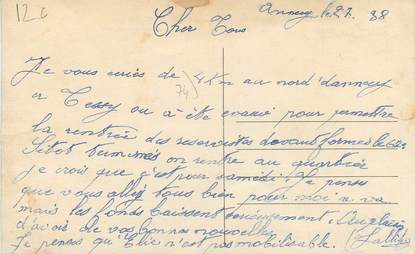 12 €
Annecy le 27. 38
Cher Tous
Je vous écris de 4 Km au nord d'annecy
74)
er Tessy ou a été évacué pour permettre
la rentrée des reservistes devant former le
Sitot terminés on rentre au quartier
je crois que c'est pour samedi. Je pense
que vous allez tous bien pour moi ça va
mais les fonds baissent sérieusement. Au plaisir
d'avoir de vos bonnes nouvelles.
Je penses qu'Elie n'est pas mobilisable.